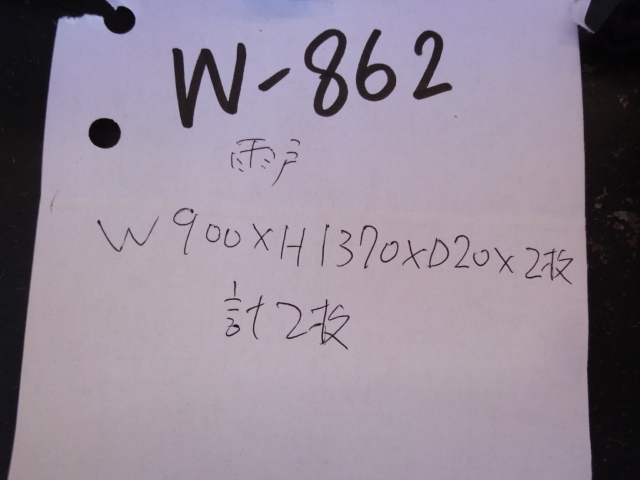 W-862
雨戸
W900×H1370×D20×2枚
計2枚